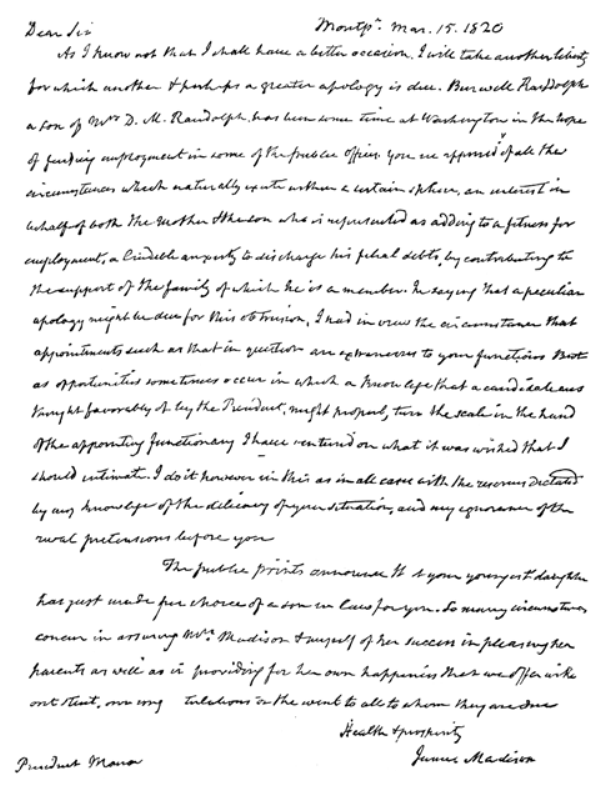 Dear Sir Montpr. Mar. 15. 1820
As I know not that I shall have a better occasion, I will take another liberty
for which another & perhaps a greater apology is due. Burwell Randolph
a son of Mrs D. M. Randolph, has been some time at Washington in the hope
of finding employment in some of the public offices. You are apprised of all the
circumstances which naturally excite within a certain sphere, an interest in
behalf of both the Mother & the son who is represented as adding to a fitness for
employment, a laudable anxiety to discharge his filial debts, by contributing to
the support of the family of which he is a member. In saying that a peculiar
apology might be due for this obtrusion, I had in view the circumstance that
appointments such as that in question are extraneous to your functions. But
as opportunities sometimes occur in which a knowledge that a candidate was
thought favorably of by the President, might properly turn the scale in the hand
of the appointing functionary I have ventured on what it was wished that I
should intimate. I do it however in this as in all cases with the reserves dictated
by my knowledge of the delicacy of your situation, and my ignorance of the
rival pretensions before you
The public prints announce that your youngest daughter
has just made her choice of a son in law for you. So many circumstances
concur in assuring Mrs. Madison & myself of her success in pleasing her
parents as well as in providing for her own happiness that we offer
our tulations on the event to all to whom they are due
Health & prosperity
President Monroe James Madison